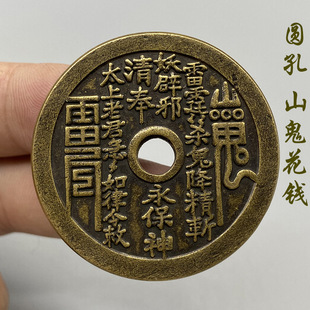 圆孔 山鬼花钱
雷霆〻〻殺鬼降精斬
妖辟邪 永保神
清奉
太上老君急〻如律令敕